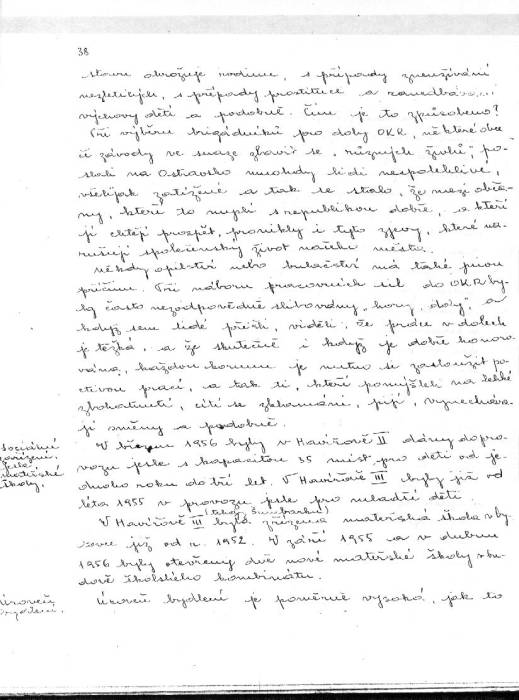 38
stavu ohrožuje rodinu, s případy zneužívání
nezletilých, s případy prostituce a zanedbáva...
výchovy dětí a podobně. Čím je to způsobeno?
Při výběru brigádníků pro doly OKR, některé obce
či závody ve snaze zbavit se „různých živlů", po-
slali na Ostravsko mnohdy lidi nespolehlivé,
všelijak zatížené a tak se stalo, že mezi obča-
ny, kteří to myslí s republikou dobře, a kteří
jí chtějí prospět, pronikly i tyto zjevy, které na-
rušují společenský život našeho města.
Někdy opilství nebo bulačství má také jinou
příčinu. Při náboru pracovních sil do OKR by-
ly často nezodpovědně slibovány „hory, doly", a
když sem lidé přišli, viděli, že práce v dolech
je těžká, a že skutečně i když je dobře honoro-
vána, každou korunu je nutno si zasloužit po-
ctivou prací, a tak ti, kteří pomýšleli na lehké
zbohatnutí, cítí se zklamáni, pijí, vynecháva-
jí směny a podobně.
Sociální
zařízení,
jesle
mateřské
školy.
V březnu 1956 byly v Havířově II dány do pro-
vozu jesle s kapacitou 35 míst pro děti od je-
dnoho roku do tří let. V Havířově III byly již od
léta 1955 v provozu jesle pro mladší děti.
V Havířově III (tehdy Šumbarku) byla zřízena mateřská škola v by-
tovce již od r. 1952. V září 1955 a v dubnu
1956 byly otevřeny dvě nové mateřské školy v bu-
dově školského kombinátu.
Úroveň
bydlení.
Úroveň bydlení je poměrně vysoká, jak to